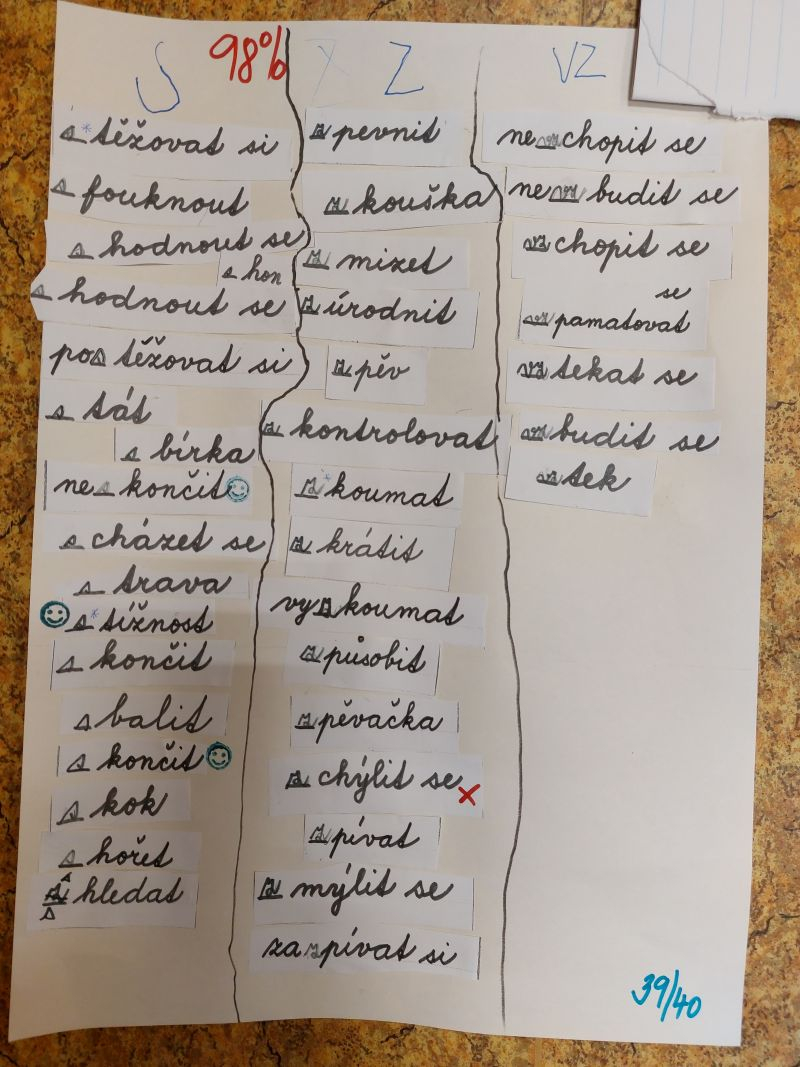 S 98% Z VZ
s*těžovat si
s fouknout
s hodnout se
s hon
s hodnout se
pos těžovat si
s tát
s bírka
nes končit
s cházet se
s trava
s*tížnost
s končit
s balit
s končit
s kok
s hořet
s hledat
z pevnit
z kouška
z mizet
z úrodnit
z pěv
z kontrolovat
z*koumat
z krátit
vyzkoumat
z působit
z pěvačka
z chýlit se x
z pívat
z mýlit se
zazpívat si
nevzchopit se
nevzbudit se
vzchopit se
se
vzpamatovat
vztekat se
vzbudit se
vztek
39/40